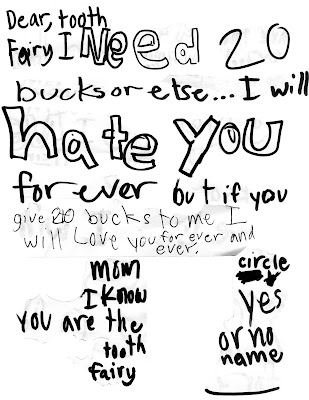 Dear, tooth
Fairy I Need 20
bucks or else... I will
hate You
for ever but if you
give 20 bucks to me I
will Love you for ever and
ever.
mom
I know
You are the
tooth
fairy
circle
yes
or no
name